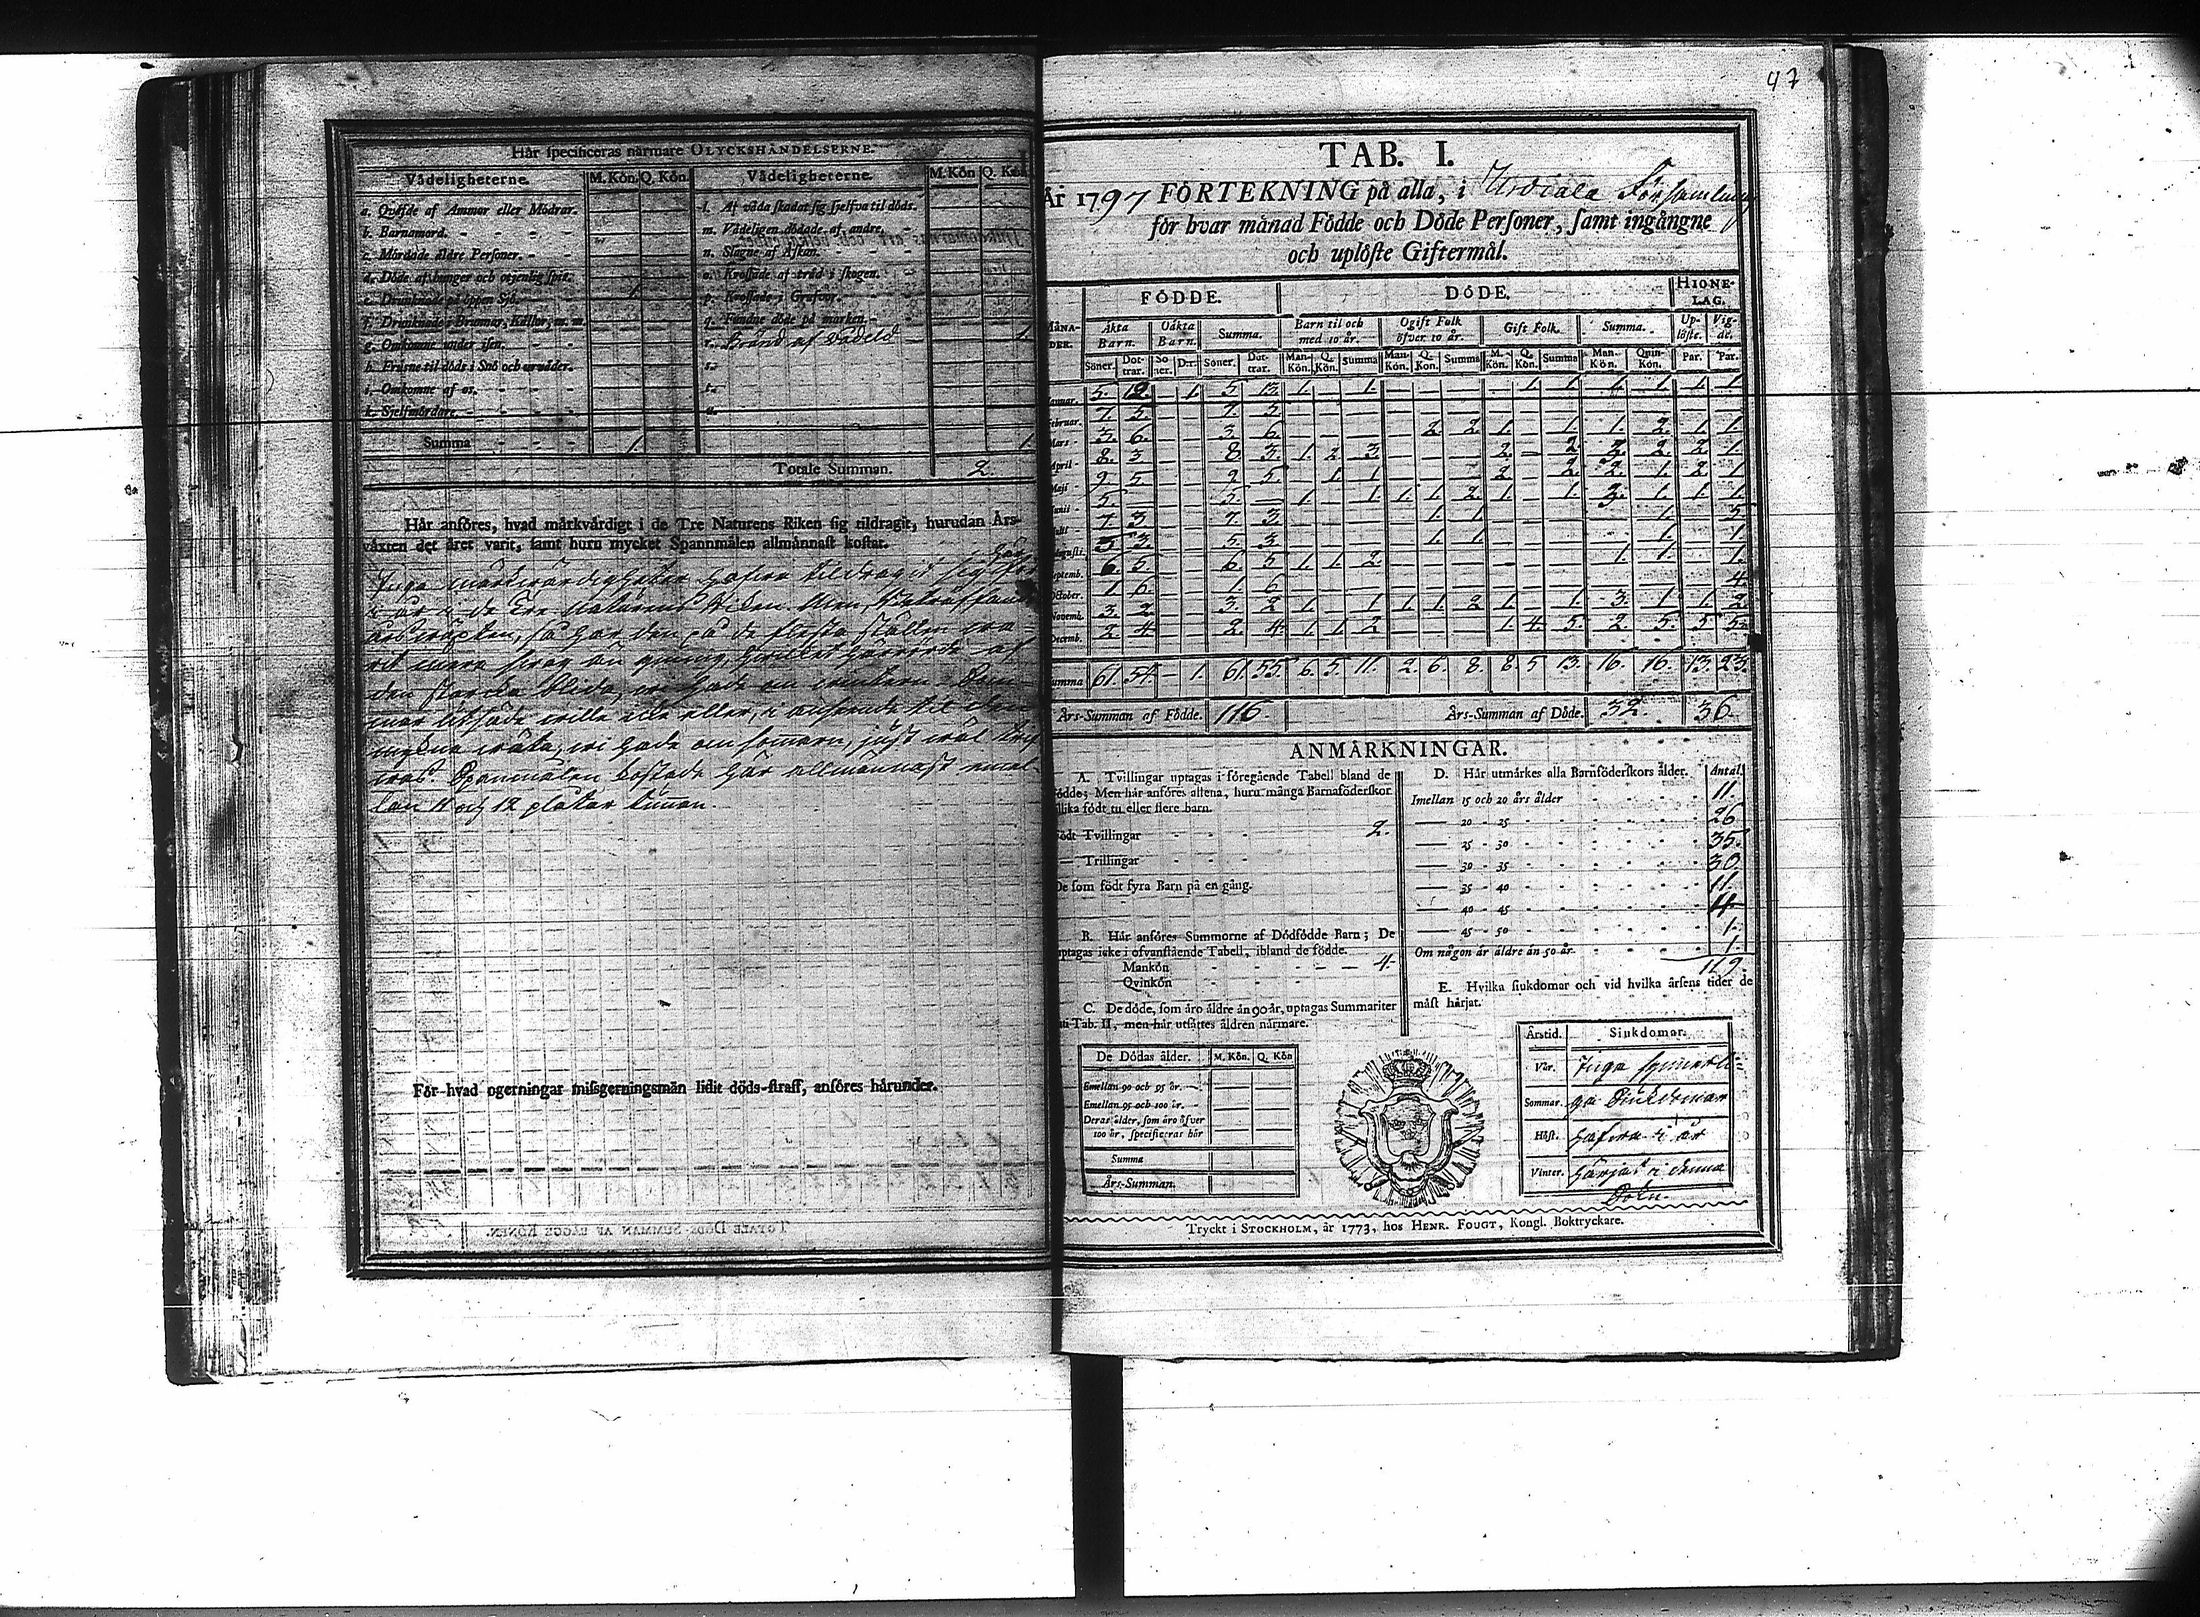 47
Här specificeras närmare OLYCKSHÄNDELSERNE.
Vådeligheterne. M. Kön. Q. Kön. Vådeligheterne. M. Kön Q. Kön
a. Qväfde af Ammor eller Mödrar. l. Af våda skadat sig sjelfva til döds.
b. Barnamord. m. Vådeligen dödade af andre.
c. Mördade äldre Personer. n. Slagne af Åskan.
d. Döde af hunger och otjenlig spis. o. Krossade af träd i skogen.
e. Drunknade på öppen Sjö. 1. p. Krossade i Grufvor.
f. Drunknade i Brunnar, Källor, m. m. q. Fundne döde på marken.
g. Omkomne under isen. r. Bränd af Vådeld 1.
h. Frusne til döds i Snö och urväder. s.
i. Omkomne af os. t.
k. Sjelfmördare. u.
Summa 1. 1.
Totale Summan. 2.
Här anföres, hvad märkvärdigt i de Tre Naturens Riken sig tildragit, hurudan Års-
växten det året varit, samt huru mycket Spannmålen allmännast kostat.
Inga märkwärdigheter hafwa tildragit sig här
i år i de Tre Naturens Riken. Men,
årswäxten, så har den på de flesta ställen wa-
rit mera swag än ymnig, hwilket härrörde af
den starcka blida, wi hade om wintern. Som-
mar Utsäde wille icke eller, i anseende til den
myckna wäta, wi hade om sommarn, just wäl
Spanmålen kostade här allmännast emel-
lan 11 och 12 plåtar tunnan.
För hvad ogerningar missgerningsmän lidit döds-straff, anföres härunder.
TAB. I.
År 1797 FÖRTEKNING på alla, i Urdiala Församling
för hvar månad Födde och Döde Personer, samt ingångne
och uplöste Giftermål.
FÖDDE. DÖDE. HIONE-LAG.
MÅNA-DER. Äkta Barn. Oäkta Barn. Summa. Barn til och med 10 år. Ogift Folk öfver 10 år. Gift Folk. Summa. Uplöste. Vigde.
Söner. Dottrar. Söner. D:r. Söner. Dottrar. Man-Kön. Q. Kön. Summa Man-Kön. Q. Kön. Summa M. Kön. Q. Kön. Summa Man-Kön. Qvin-Kön. Par. Par.
Januar. 5. 12. — 1. 5. 13. 1. — 1. — — — — 1. 1. 1. 1. 1. 1.
Februar. 7. 5. — — 7. 5.
Mars 3. 6. — — 3. 6. — — — — 2. 2. 1. — 1. 1. 2. 1. 1.
April 8. 3. — — 8. 3. 1. 2. 3. — — — 2. — 2. 3. 2. 2. 1.
Maji 9. 5. — — 9. 5. — 1. 1. — — — 2. — 2. 2. 1. 2. 1.
Junii 5. — — — 5. — 1. — 1. 1. 1. 2. 1. — 1. 3. 1. 1. 1.
Julii 7. 3. — — 7. 3. — — — — 1. 1. — — — — 1. — 5.
Augusti. 5. 3. — — 5. 3. — — — — 1. 1. — — — — 1. — 1.
Septemb. 6. 5. — — 6. 5. 1. 1. 2. — — — — — — 1. 1. — 1.
October. 1. 6. — — 1. 6. 4.
Novemb. 3. 2. — — 3. 2. 1. — 1. 1. 1. 2. 1. — 1. 3. 1. 1. 2.
Decemb. 2. 4. — — 2. 4. 1. 1. 2. — — — 1. 4. 5. 2. 5. 5. 5.
Summa 61. 54. — 1. 61. 55. 6. 5. 11. 2. 6. 8. 8. 5. 13. 16. 16. 13. 23.
Års-Summan af Födde. 116. Års-Summan af Döde. 32. 36.
ANMÄRKNINGAR.
A. Tvillingar uptagas i föregående Tabell bland de
födde; Men här anföres altena, huru många Barnaföderskor
tillika födt tu eller flere barn.
Födt Tvillingar 2.
— Trillingar
De som födt fyra Barn på en gång.
B. Här anföres Summorne af Dödfödde Barn; De
uptagas icke i ofvanstående Tabell, ibland de födde.
Mankön 4.
Qvinkön
C. De döde, som äro äldre än 90 år, uptagas Summariter
uti Tab. II, men här utsättes åldren närmare.
De Dödas ålder. M. Kön. Q. Kön
Emellan 90 och 95 år.
Emellan 95 och 100 år.
Deras ålder, som äro öfver
100 år, specificeras här
Summa
Års-Summan.
D. Här utmärkes alla Barnföderskors ålder. Antal.
Imellan 15 och 20 års ålder 11.
— 20 - 25 26
— 25 - 30 35.
— 30 - 35 30
— 35 - 40 11.
— 40 - 45 4
— 45 - 50 1.
Om någon är äldre än 50 år. 1.
119
E. Hvilka siukdomar och vid hvilka årsens tider de
mäst härjat.
Årstid. Siukdomar.
Vår. Inga synnerli-
Sommar. ga Siukdomar
Höst. hafwa i år
Vinter. härjat i denna
Sokn.
Tryckt i STOCKHOLM, år 1773, hos HENR. FOUGT, Kongl. Boktryckare.